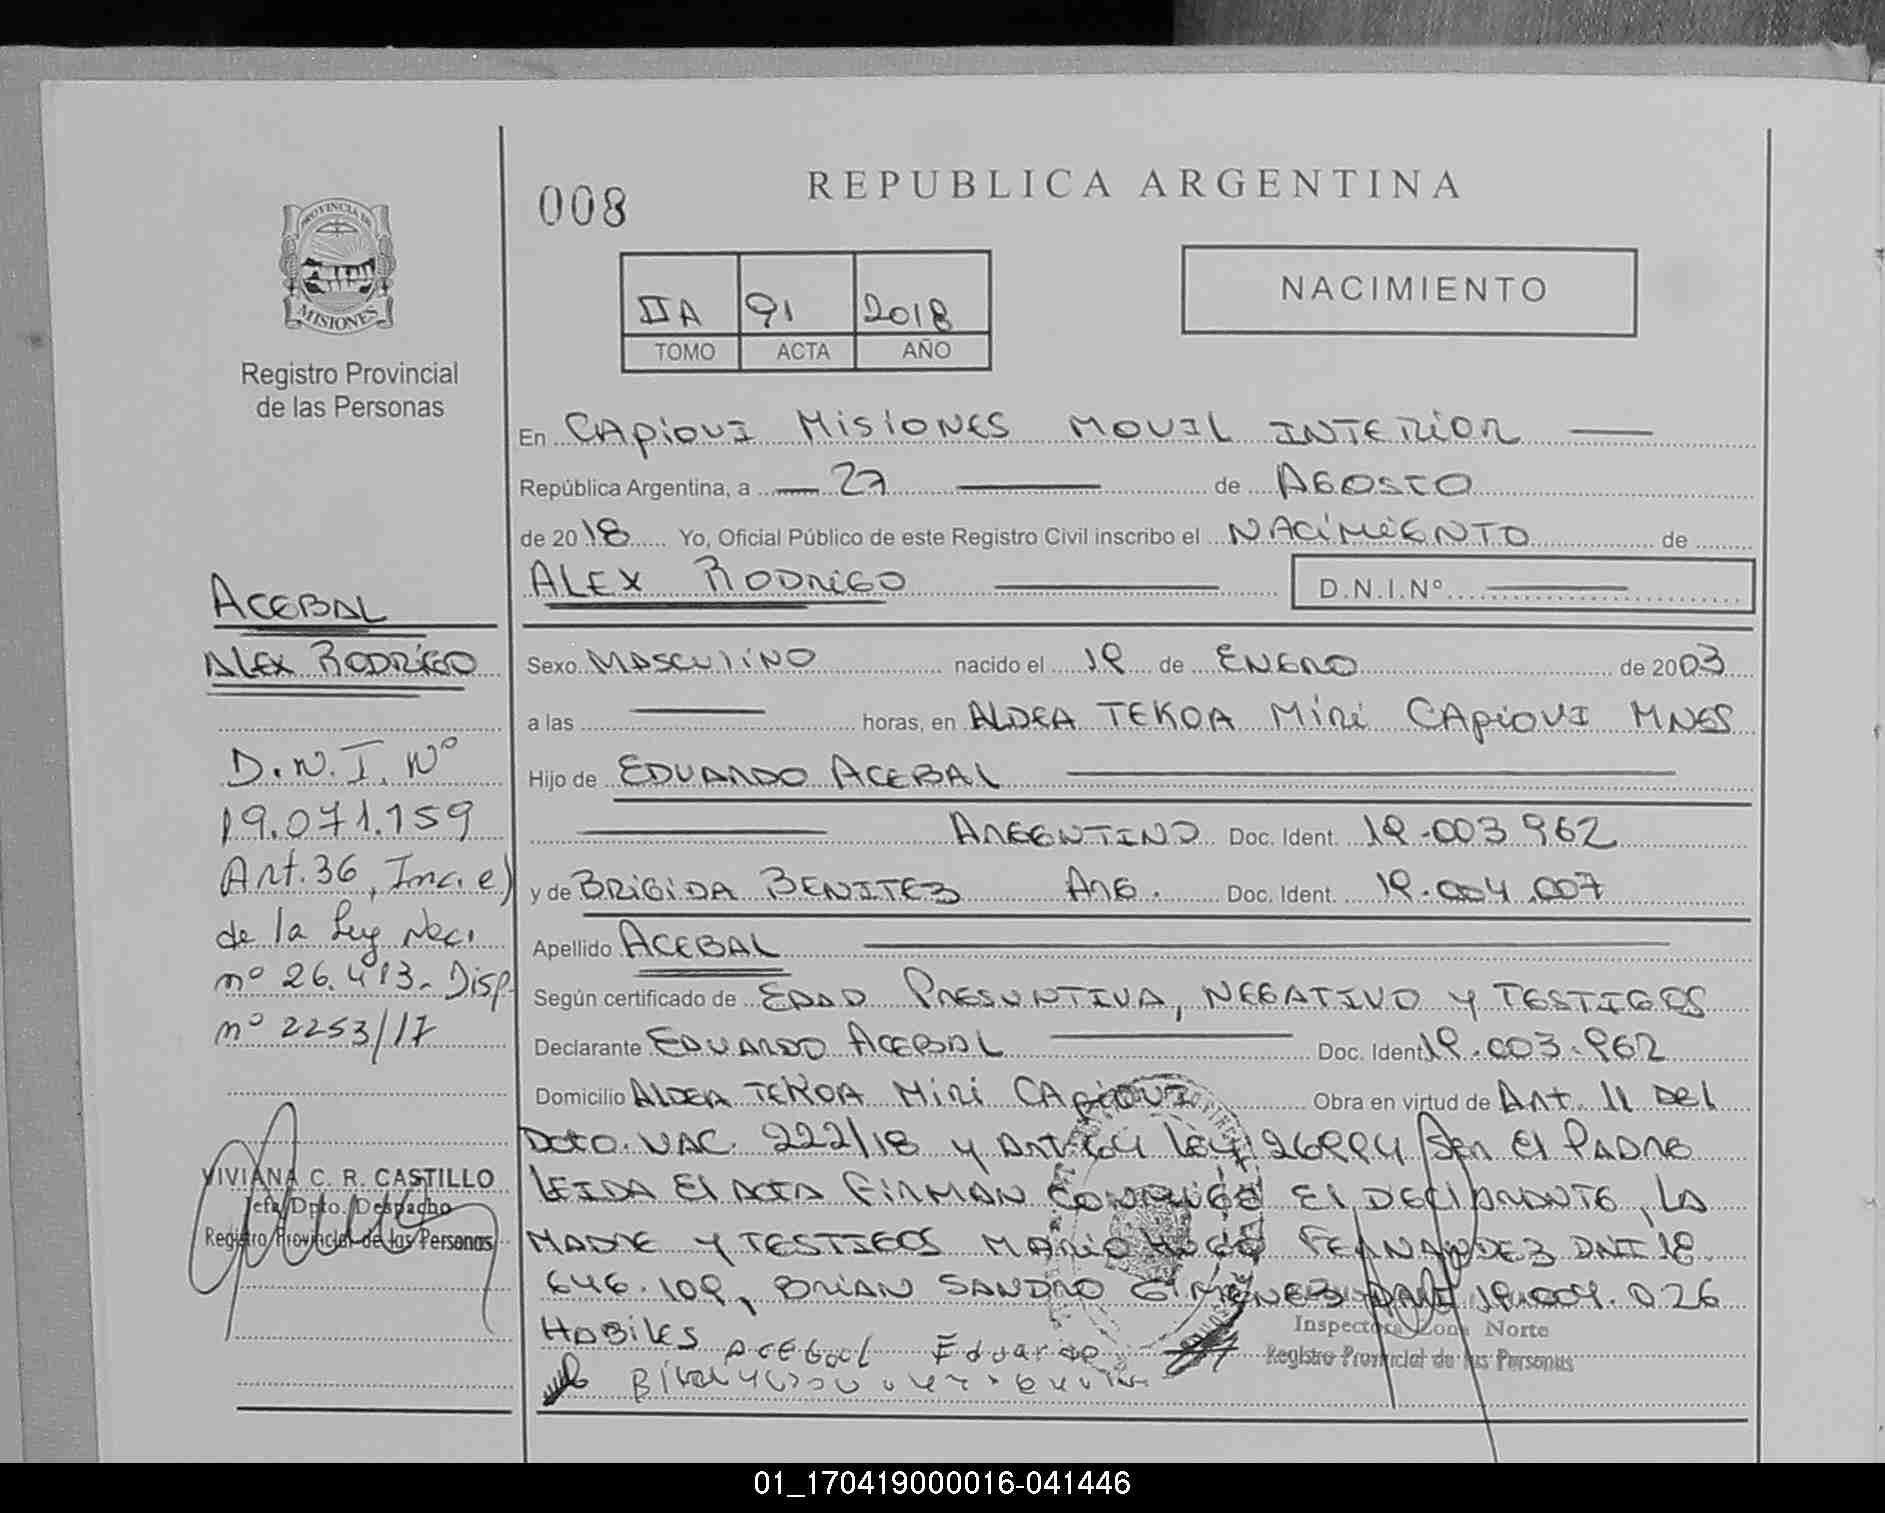 REPUBLICA ARGENTINA
008
PROVINCIA DE
MISIONES
Registro Provincial
de las Personas
NACIMIENTO
IIA 91 2018
TOMO ACTA AÑO
En CAPIOVI MISIONES MOVIL INTERIOR
República Argentina, a 27 de AGOSTO
de 2018 Yo, Oficial Público de este Registro Civil inscribo el NACIMIENTO de
ALEX RODRIGO D.N.I.Nº
ACEBAL
ALEX RODRIGO
D.N.I. Nº
19.071.159
Art.36, Inc. e)
de la Ley Nac.
nº 26.413. Disp.
nº 2253/17
VIVIANA C. R. CASTILLO
Jefa Dpto. Despacho
Registro Provincial de las Personas
Sexo MASCULINO nacido el 19 de ENERO de 2003
a las horas, en ALDEA TEKOA MIRI CAPIOVI MNES
Hijo de EDUARDO ACEBAL
ARGENTINO Doc. Ident. 19.003.962
y de BRIGIDA BENITEZ ARG. Doc. Ident. 19.004.007
Apellido ACEBAL
Según certificado de EDAD PRESUNTIVA, NEGATIVO Y TESTIGOS
Declarante EDUARDO ACEBAL Doc. Ident 19.003.962
Domicilio ALDEA TEKOA MIRI CAPIOVI Obra en virtud de ART. 11 DEL
DCTO. NAC. 222/18 Y ART. 64 LEY 26994 SER EL PADRE
LEIDA EL ACTA FIRMAN CONMIGO EL DECLARANTE, LA
MADRE Y TESTIGOS MARIO HUGO FERNANDEZ DNI 18.
646.109, BRIAN SANDRO GIMENEZ DNI 19.004.026
HABILES ACEBAL Eduardo
Inspectora Zona Norte
Registro Provincial de las Personas
01_170419000016-041446